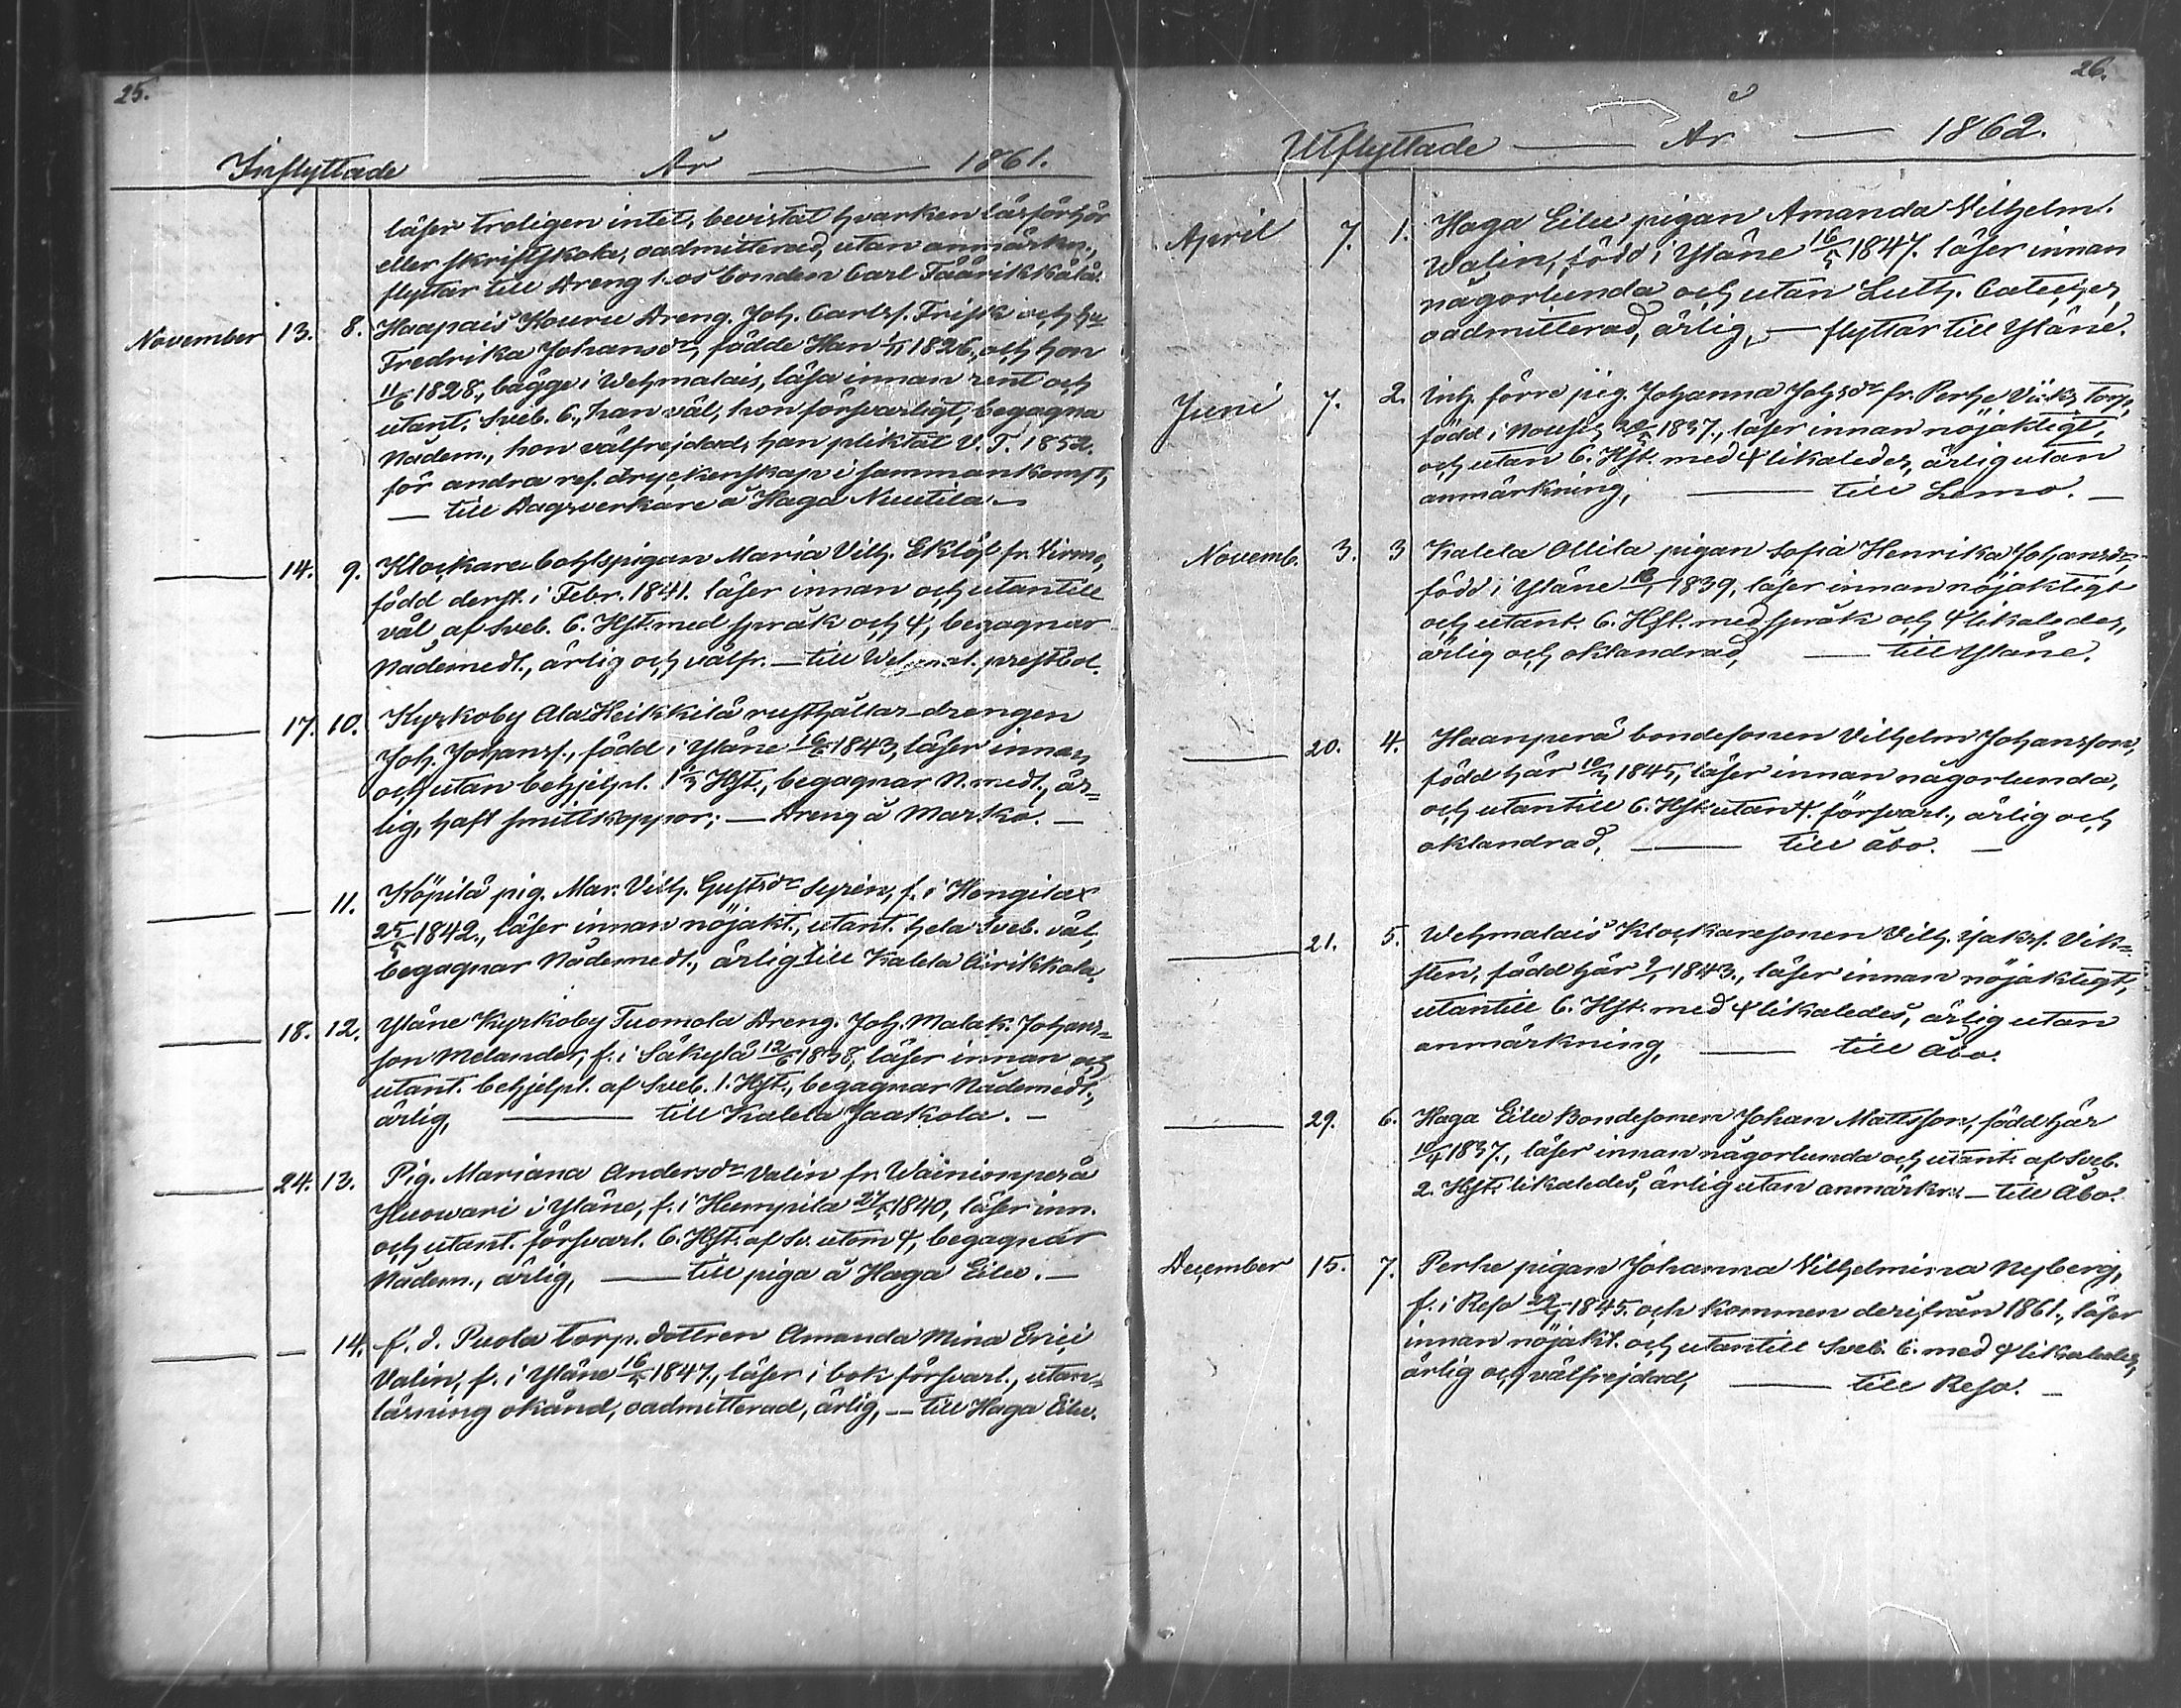 25.
Inflyttade År 1861.
läser troligen intet, bevistat hvarken läsförhör
eller skriftskola, oadmitterad, utan anmärkn.,
flyttar till Dreng hos bonden Carl
November 13. 8. Haapais Kouru Dreng. Joh. Carlss. Frisk och hu
Fredrika Johansdr, födde Han 1826, och hon
11/6 1828, bägge i Wehmalais, läsa innan rent och
utant. Sveb. C., han väl, hon försvarligt, begagna
Nådem., hon välfrejdad, han pliktat V.T. 1852.
för andra res. dryckenskap i sammankomst,
— till Dagsverkare å Haga Nuutila —
— 14. 9. Klockarebohlspigan Maria Vilh. Eklöf fr. Virmo,
född derst. i Febr. 1841. läser innan och utantill
väl af Sveb. C. Hft. med språk och 4, begagnar
Nådemedl., ärlig och välfr. — till prestbol.
— 17. 10. Kyrkoby Ala Heikkilä rusthållar-drengen
Joh. Johanss., född i Yläne 16/6 1843, läser innan
och utan behjelpl. 1/3 Hft., begagnar N.medl., är=
lig, haft smittkoppor; — Dreng å Marko. —
— — 11. Köpilä pig. Mar. Vilh. Gustsdr Syrén, f. i Hongilax
25/5 1842., läser innan nöjakt., utant. hela Sveb. väl,
begagnar Nådemedl., ärlig till Kalela Äirikkala.
— 18. 12. Yläne Kyrkoby Tuomola Dreng. Joh. Malak. Johans=
son Melander, f. i Säkylä 12/6 1838, läser innan och
utant. behjelpl. af Sveb. 1. Hft., begagnar Nådemedl.,
ärlig, — till Kalela Jaakola. —
— 24. 13. Pig. Mariana Andersdr Valin fr. Wainionperä
Huowari i Yläne, f. i Humpila 27/5 1840, läser inn.
och utant. försvarl. C. Hft. af Sv. utom 4, begagnar
Nådem., ärlig, — till piga å Haga Eilu. —
— — 14. f. d. Puola torp. dottren Amanda Mina Erici
Valin, f. i Yläne 16/5 1847., läser i bok försvarl., utan=
läsning okänd, oadmitterad, ärlig, — till Haga Eilu.
26.
Utflyttade — År — 1862.
April 7. 1. Haga Eilu pigan Amanda Vilhelm.
Walin, född i Yläne 16/5 1847. läser innan
någorlunda och utan Luth. Cateches,
oadmitterad, ärlig, — flyttar till Yläne.
Juni 7. 2. Inh. förre pig. Johanna Johsdr fr. Perhe Viiks torp,
född i Nousis 1837., läser innan nöjaktigt,
och utan C. Hft. med 4 likaledes, ärlig utan
anmärkning, — till Lemo. —
Novemb. 3. 3 Kalela Ollila pigan Sofia Henrika Johansdr,
född i Yläne 1839, läser innan nöjaktigt
och utant. C. Hft. med språk och 4 likaledes,
ärlig och oklandrad, — till Yläne.
— 20. 4. Haanperä bondesonen Vilhelm Johansson,
född här 1845, läser innan någorlunda,
och utantill C. Hft. utan 4. försvarl., ärlig och
oklandrad, — till Åbo. —
— 21. 5. Wehmalais Klockaresonen Vilh. Jaks. Vik=
sten, född här 1843., läser innan nöjaktigt,
utantill C. Hft. med 4 likaledes, ärlig utan
anmärkning, — till Åbo.
— 29. 6. Haga Eilu Bondesonen Johan Mattsson, född här
10/4 1837., läser innan någorlunda och utant. af Sveb.
2. Hft. likaledes, ärlig utan anmärkn. — till Åbo.
December 15. 7. Perhe pigan Johanna Vilhelmina Nyberg,
f. i Reso 1845. och kommen derifrån 1861., läser
innan nöjakt. och utantill Sveb. C. med 4 likaledes,
ärlig och välfrejdad, — till Reso. —